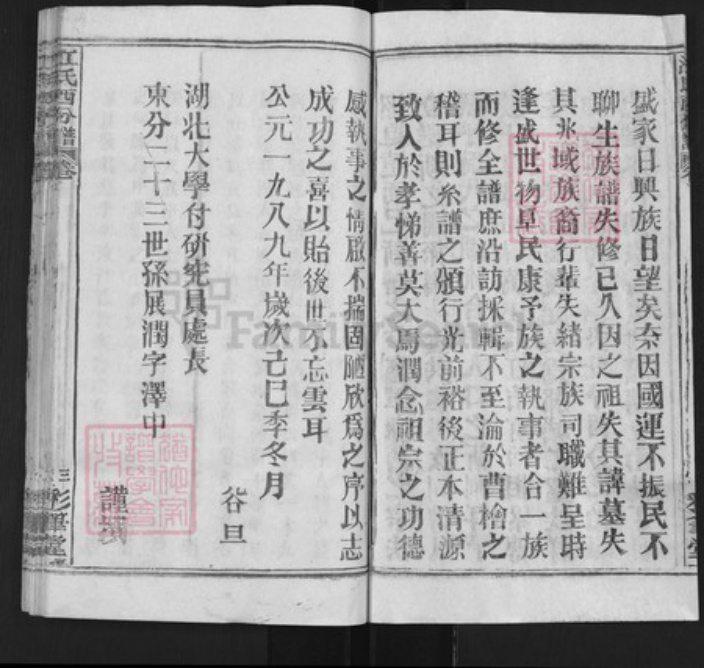 盛家日興族日望矣奈因國運不振民不
聊生族譜失修已久因之祖失其諱墓失
其兆域族裔行輩失緒宗族司職難呈時
逢盛世物阜民康予族之執事者合一族
而修全譜庶沿訪採輯不至淪於曹檜之
稽耳則糸譜之頒行光前裕後正本清源
致人於孝悌善莫大焉潤念祖宗之功德
感執事之情殷不揣固陋欣爲之序以志
成功之喜以貽後世不忘雲耳
公元一九八九年歲次己巳季冬月
穀旦
湖北大學付研究員處長
東分二十三世孫展潤字澤中
謹撰
江氏西分譜 卷
三
彩筆堂
FamilySearch